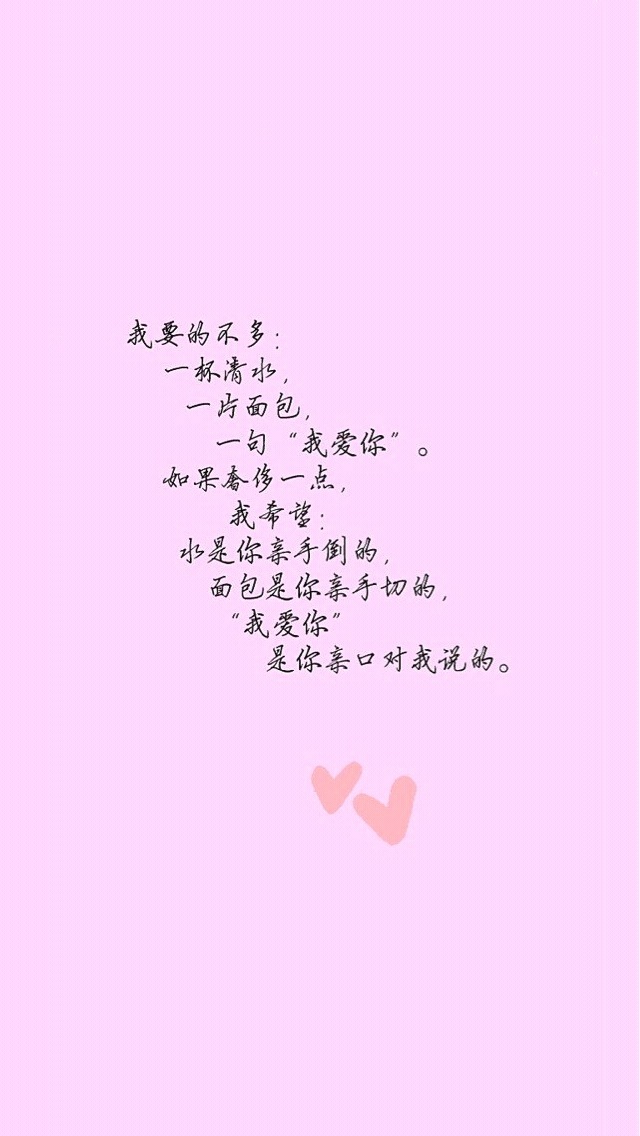 我要的不多：
一杯清水，
一片面包，
一句“我爱你”。
如果奢侈一点，
我希望：
水是你亲手倒的，
面包是你亲手切的，
“我爱你”
是你亲口对我说的。